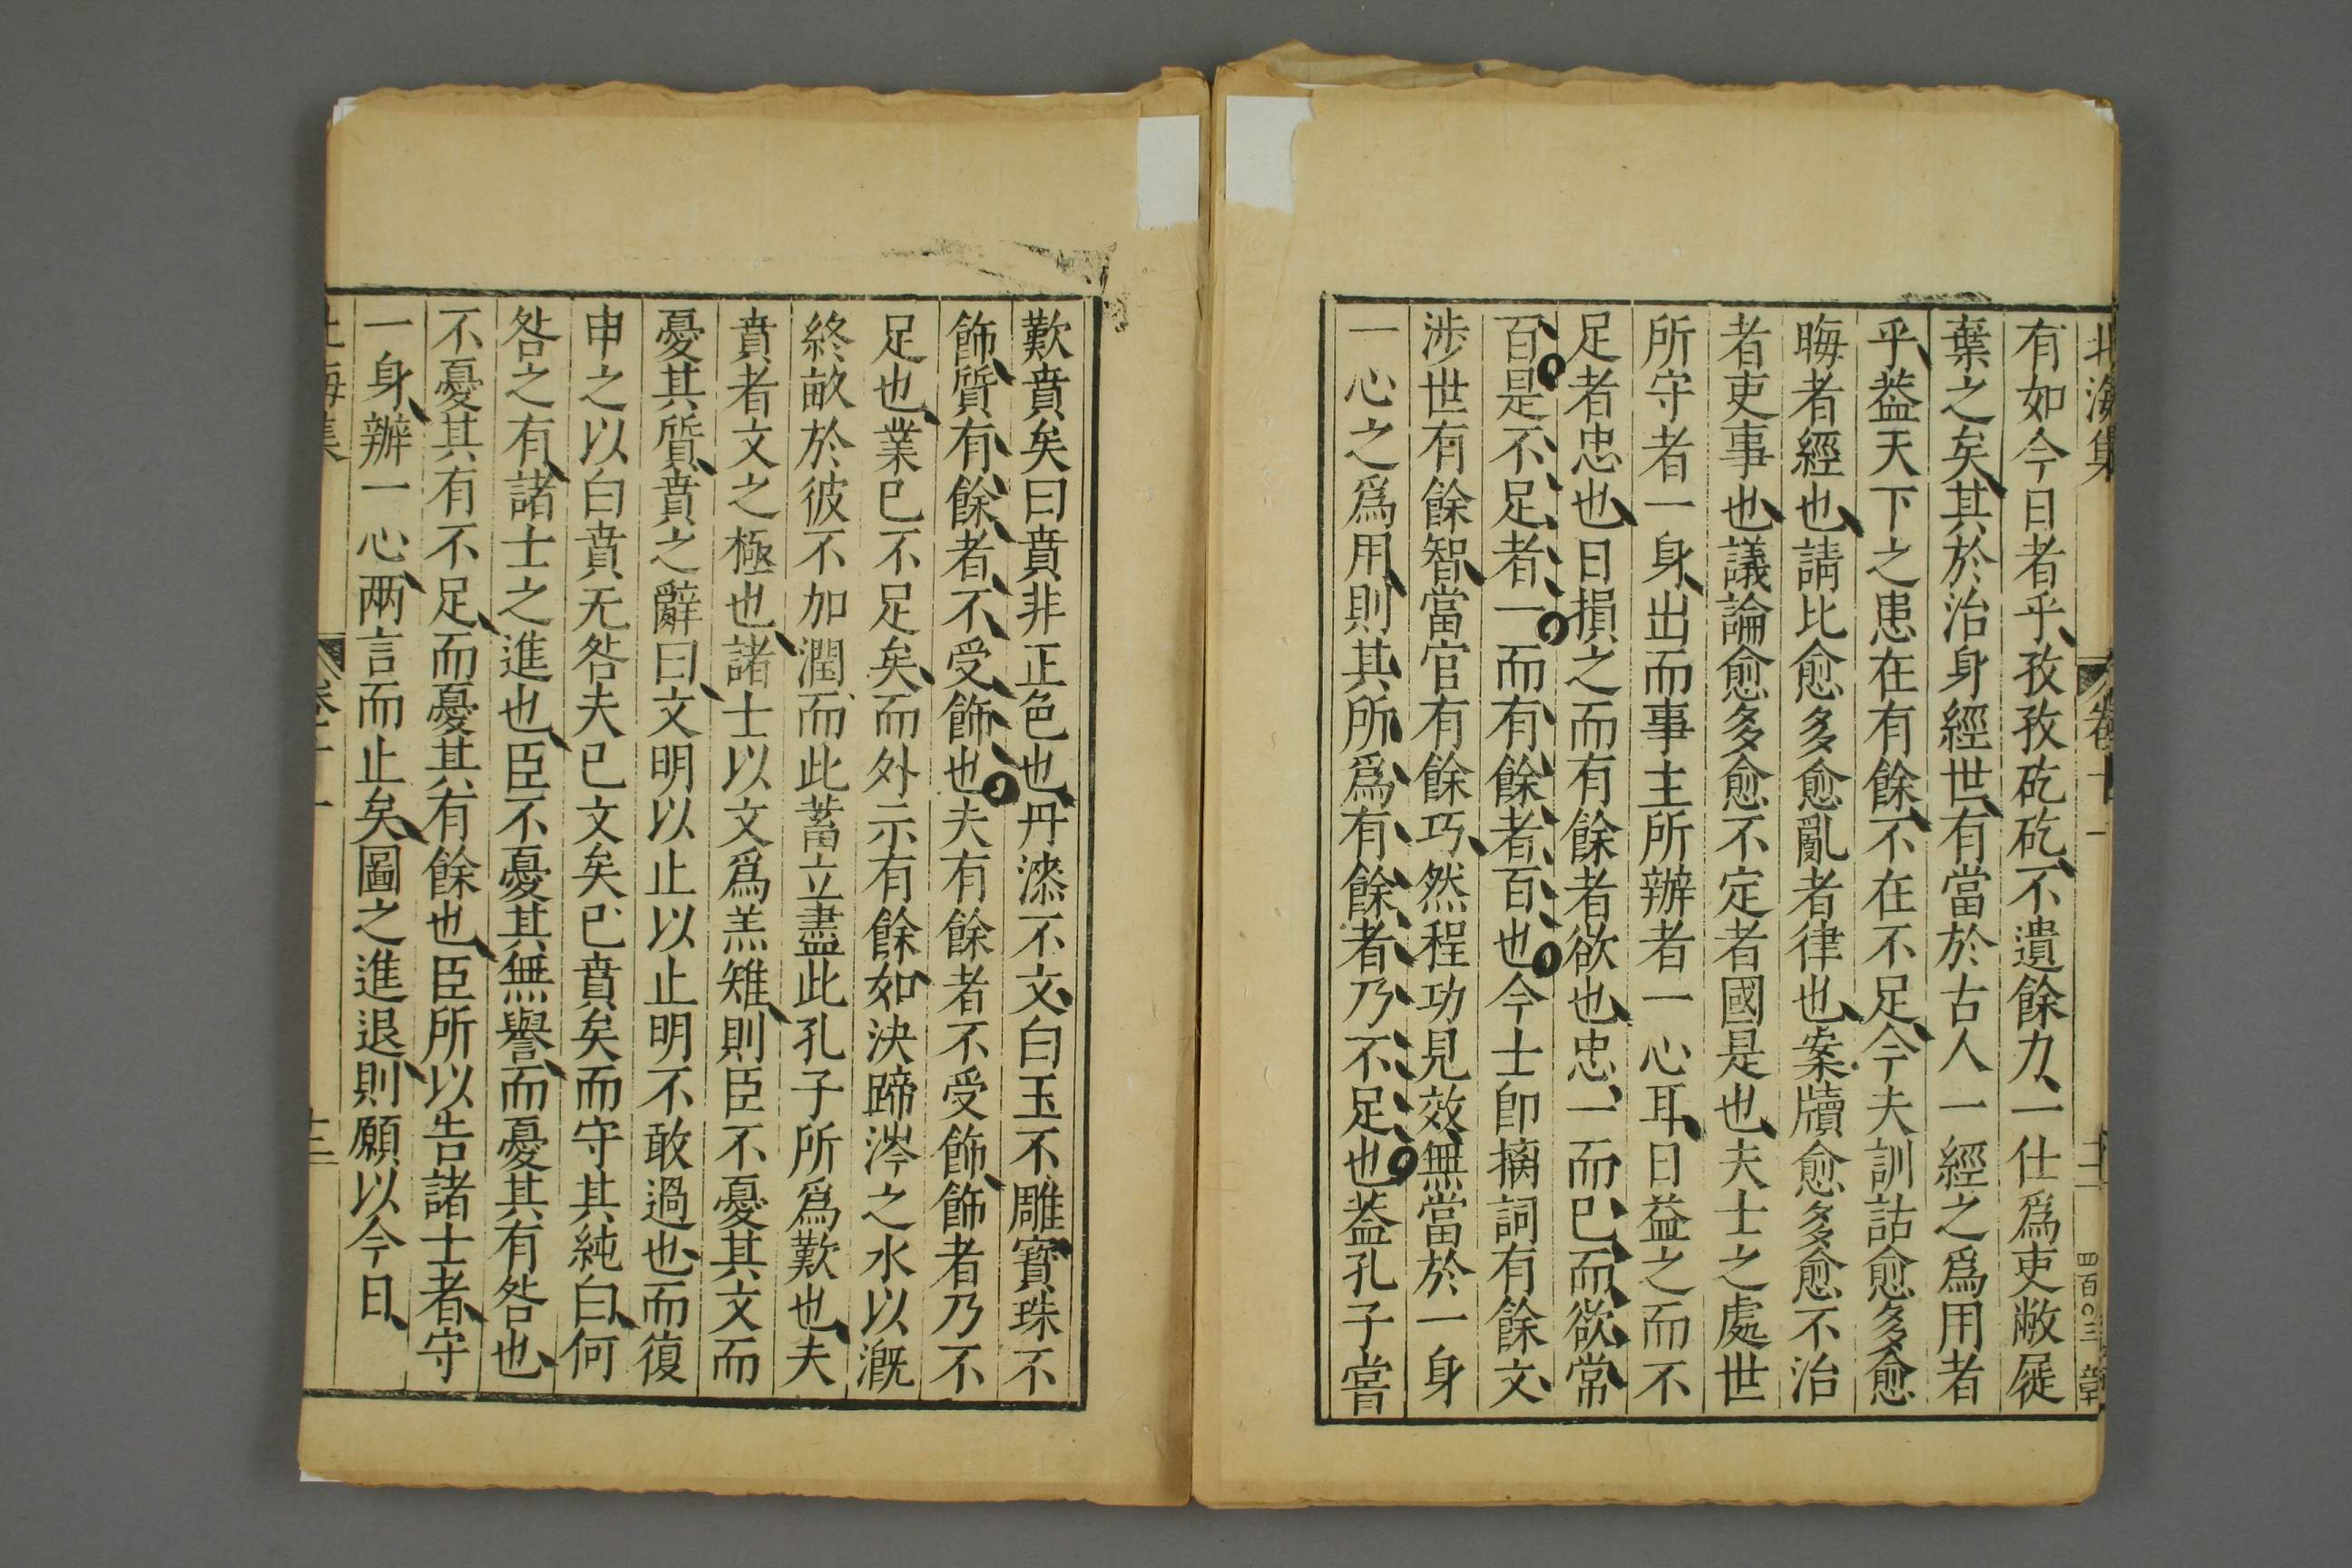 北海集 卷十一 十二 四百〇三 章
有如今日者乎孜孜矻矻不遺餘力一仕爲吏敝屣
棄之矣其於治身經世有當於古人一經之爲用者
乎葢天下之患在有餘不在不足今夫訓詁愈多愈
晦者經也請比愈多愈亂者律也案牘愈多愈不治
者吏事也議論愈多愈不定者國是也夫士之處世
所守者一身出而事主所辦者一心耳日益之而不
足者忠也日損之而有餘者欲也忠一而已而欲常
百是不足者一而有餘者百也今士卽摛詞有餘文
涉世有餘智當官有餘巧然程功見效無當於一身
一心之爲用則其所爲有餘者乃不足也葢孔子嘗
歎賁矣曰賁非正色也丹漆不文白玉不雕寳珠不
飾質有餘者不受飾也夫有餘者不受飾飾者乃不
足也業已不足矣而外示有餘如決蹄涔之水以漑
終畝於彼不加潤而此蓄立盡此孔子所爲歎也夫
賁者文之極也諸士以文爲羔雉則臣不憂其文而
憂其質賁之辭曰文明以止以止明不敢過也而復
申之以白賁无咎夫已文矣已賁矣而守其純白何
咎之有諸士之進也臣不憂其無譽而憂其有咎也
不憂其有不足而憂其有餘也臣所以告諸士者守
一身辦一心兩言而止矣圖之進退則願以今日
海集 卷十一 十三